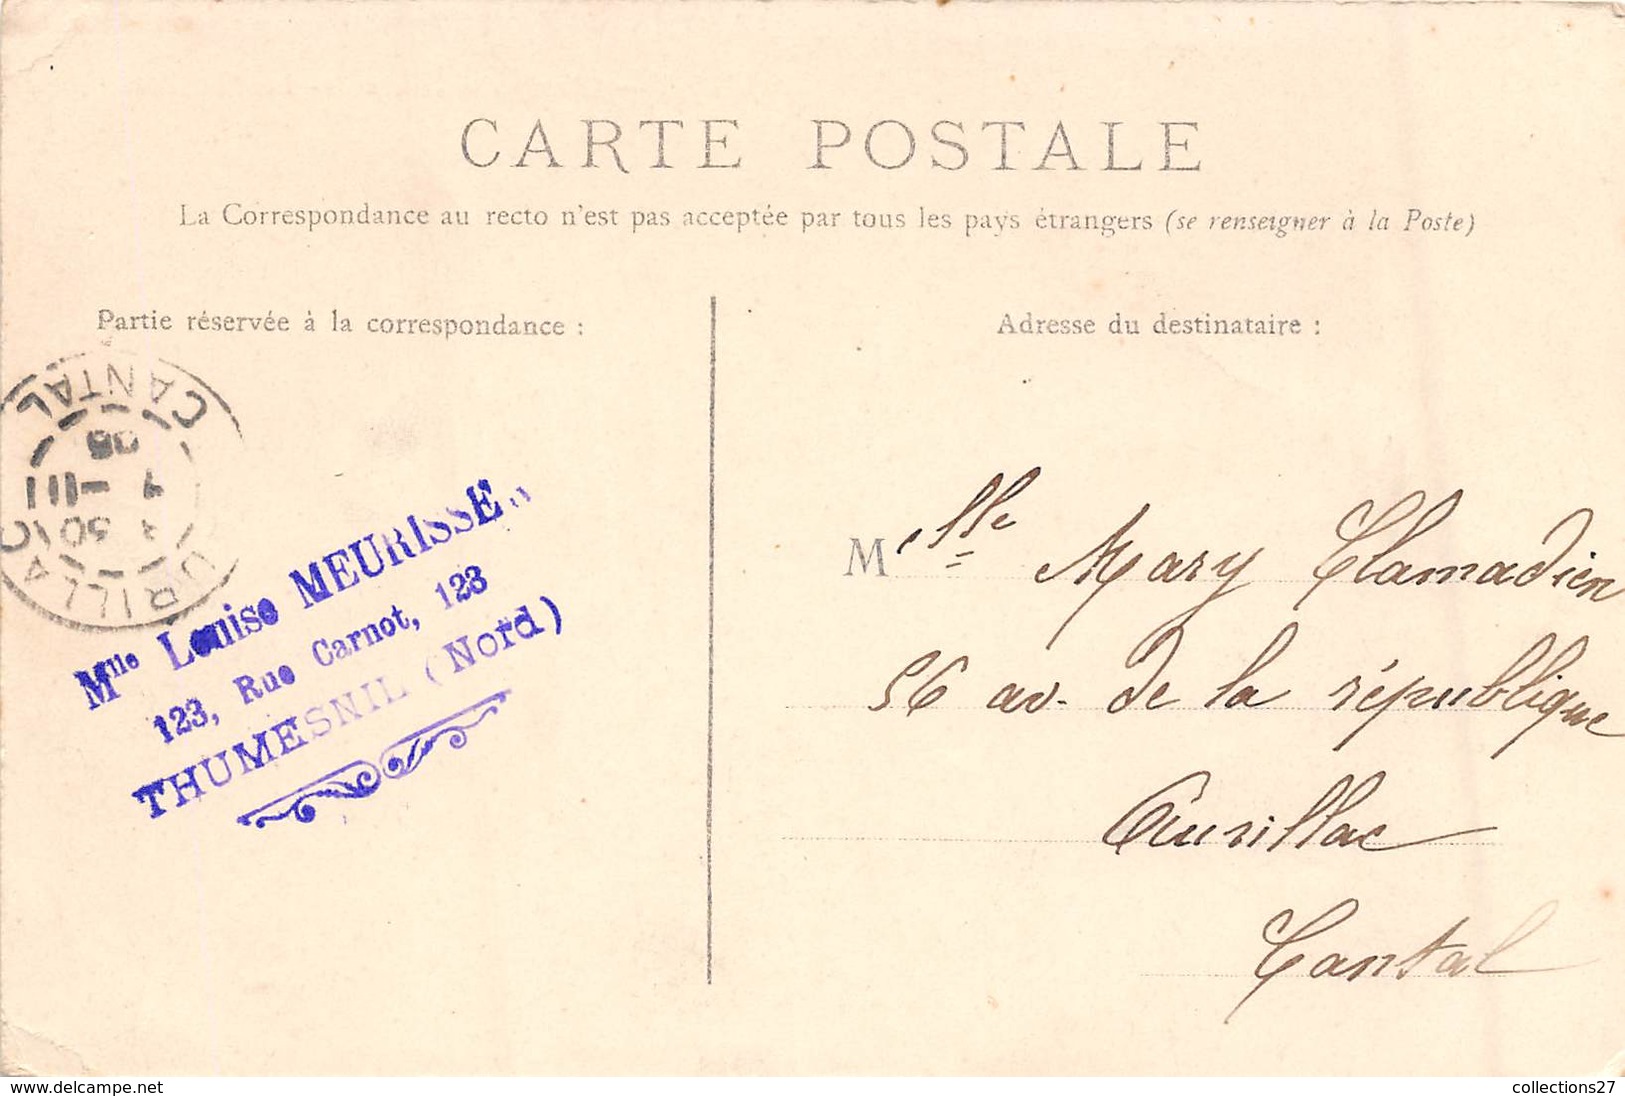 CARTE POSTALE
La Correspondance au recto n'est pas acceptée par tous les pays étrangers (se renseigner à la Poste)
Partie réservée à la correspondance :
Adresse du destinataire :
CANTAL
Mlle Louise MEURISSE
123, Rue Carnot, 123
THUMESNIL (Nord)
Melle Mary Clamadieu
56 av. de la république
Aurillac
Cantal
www.delcampe.net
collections27